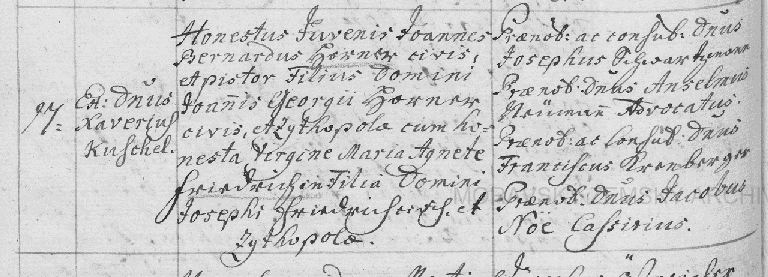 17.
Ad: Dnus
Xaverius
Kuschel.
Honestus Juvenis Joannes
Bernardus Horner civis,
et pistor Filius Domini
Joannis Georgii Horner
civis, et Zythopolæ cum ho-
nesta Virgine Maria Agnete
Friedrichin Filia Domini
Josephi Friedrich et
Zythopolæ.
Prænob: ac consub: Dnus
Josephus
Prænob: Dnus Anselmus
Neümann Advocatus.
Prænob: ac Consub: Dnus
Franciscus Kremberger
Prænob: Dnus Jacobus
Nöe Cassirius.